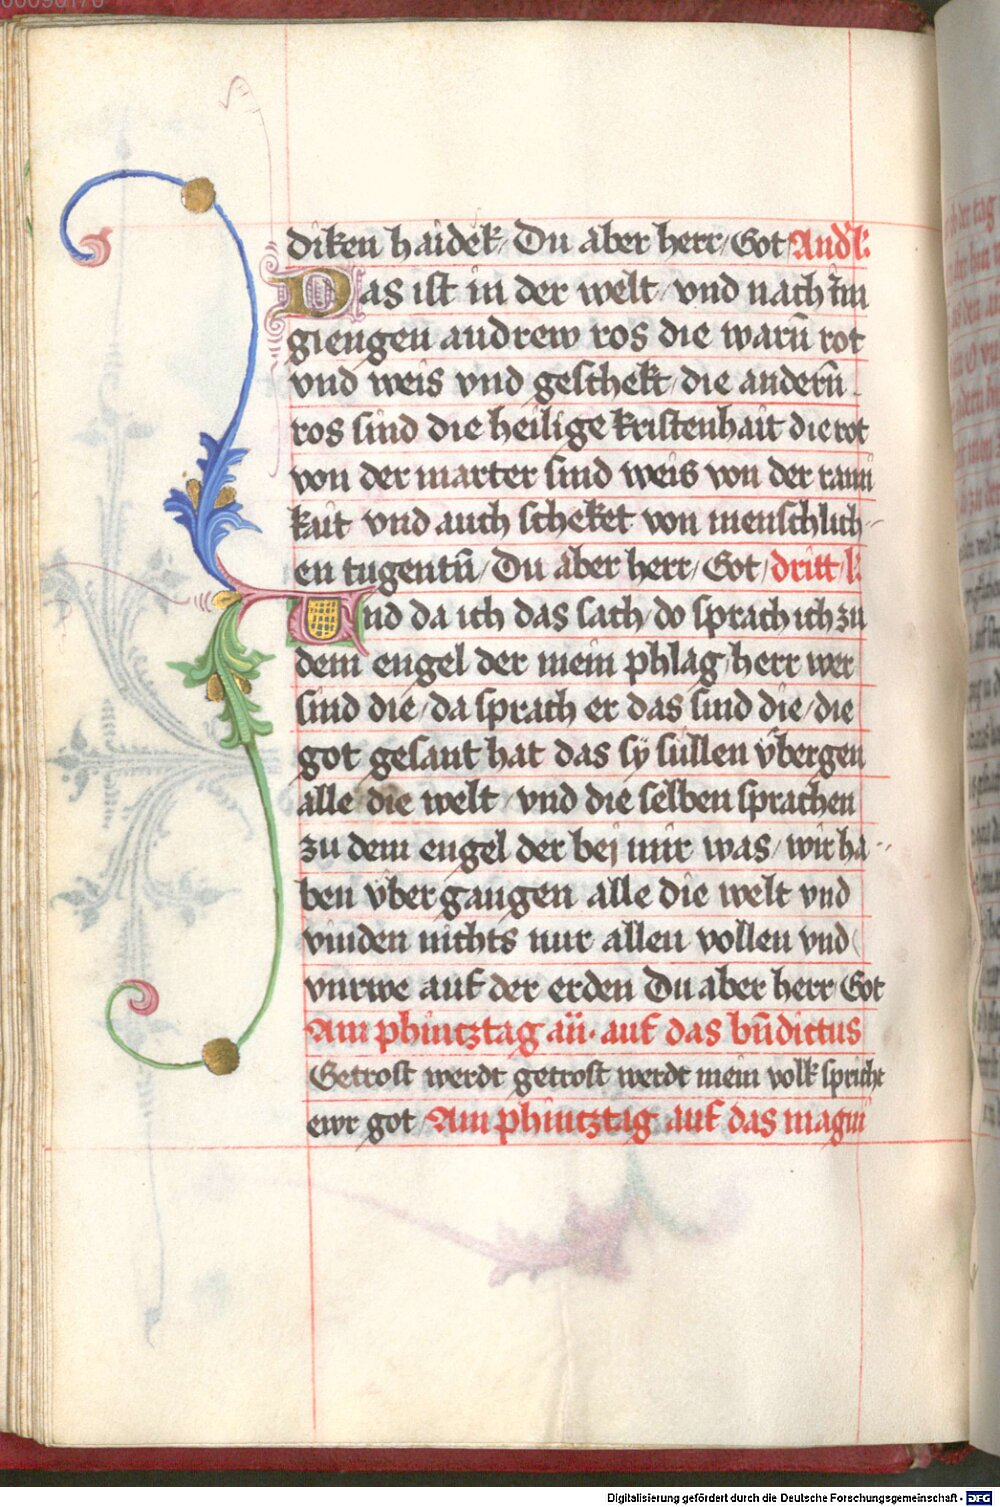 diken haidek / Du aber herr / Got Andl:
Das ist in der welt / vnd nach im
giengen andrew ros die warn̄ rot
vnd weis vnd geschekt / die andern̄
ros sind die heilige kristenhait die rot
von der marter sind weis von der rain̄
kait vnd auch scheket von menschlich-
en tugentn̄ / Du aber herr / Got / dritt l:
Vnd da ich das sach / do sprach ich zu
dem engel der mein phlag / herr wer
sind die / da sprach er das sind die / die
got gesant hat das sÿ sullen vbergen
alle die welt / vnd die selben sprachen
zu dem engel der bej mir was / wir ha-
ben vbergangen alle die welt vnd
vinden nichts nur allen vollen vnd
vnrwe auf der erden Du aber herr / Got
Am phincztag aū. auf das bn̄dictus
Getrost werdt getrost werdt mein volk spricht
ewr got / Am phincztag auf das magni
Digitalisierung gefördert durch die Deutsche Forschungsgemeinschaft - DFG